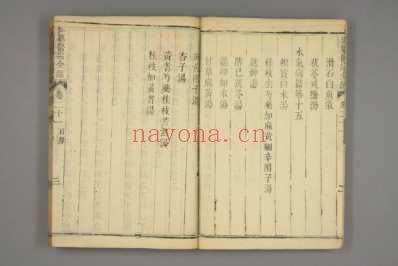 滑石白魚散
茯苓戎鹽湯
水氣病篇第十五
桂枝去芍藥加麻黃細辛附子湯
越婢湯
防已茯苓湯
越婢加朮湯
甘草麻黃湯
麻黃附子湯
杏子湯
黃耆芍藥桂枝苦酒湯
桂枝加黃耆湯
nayona.cn